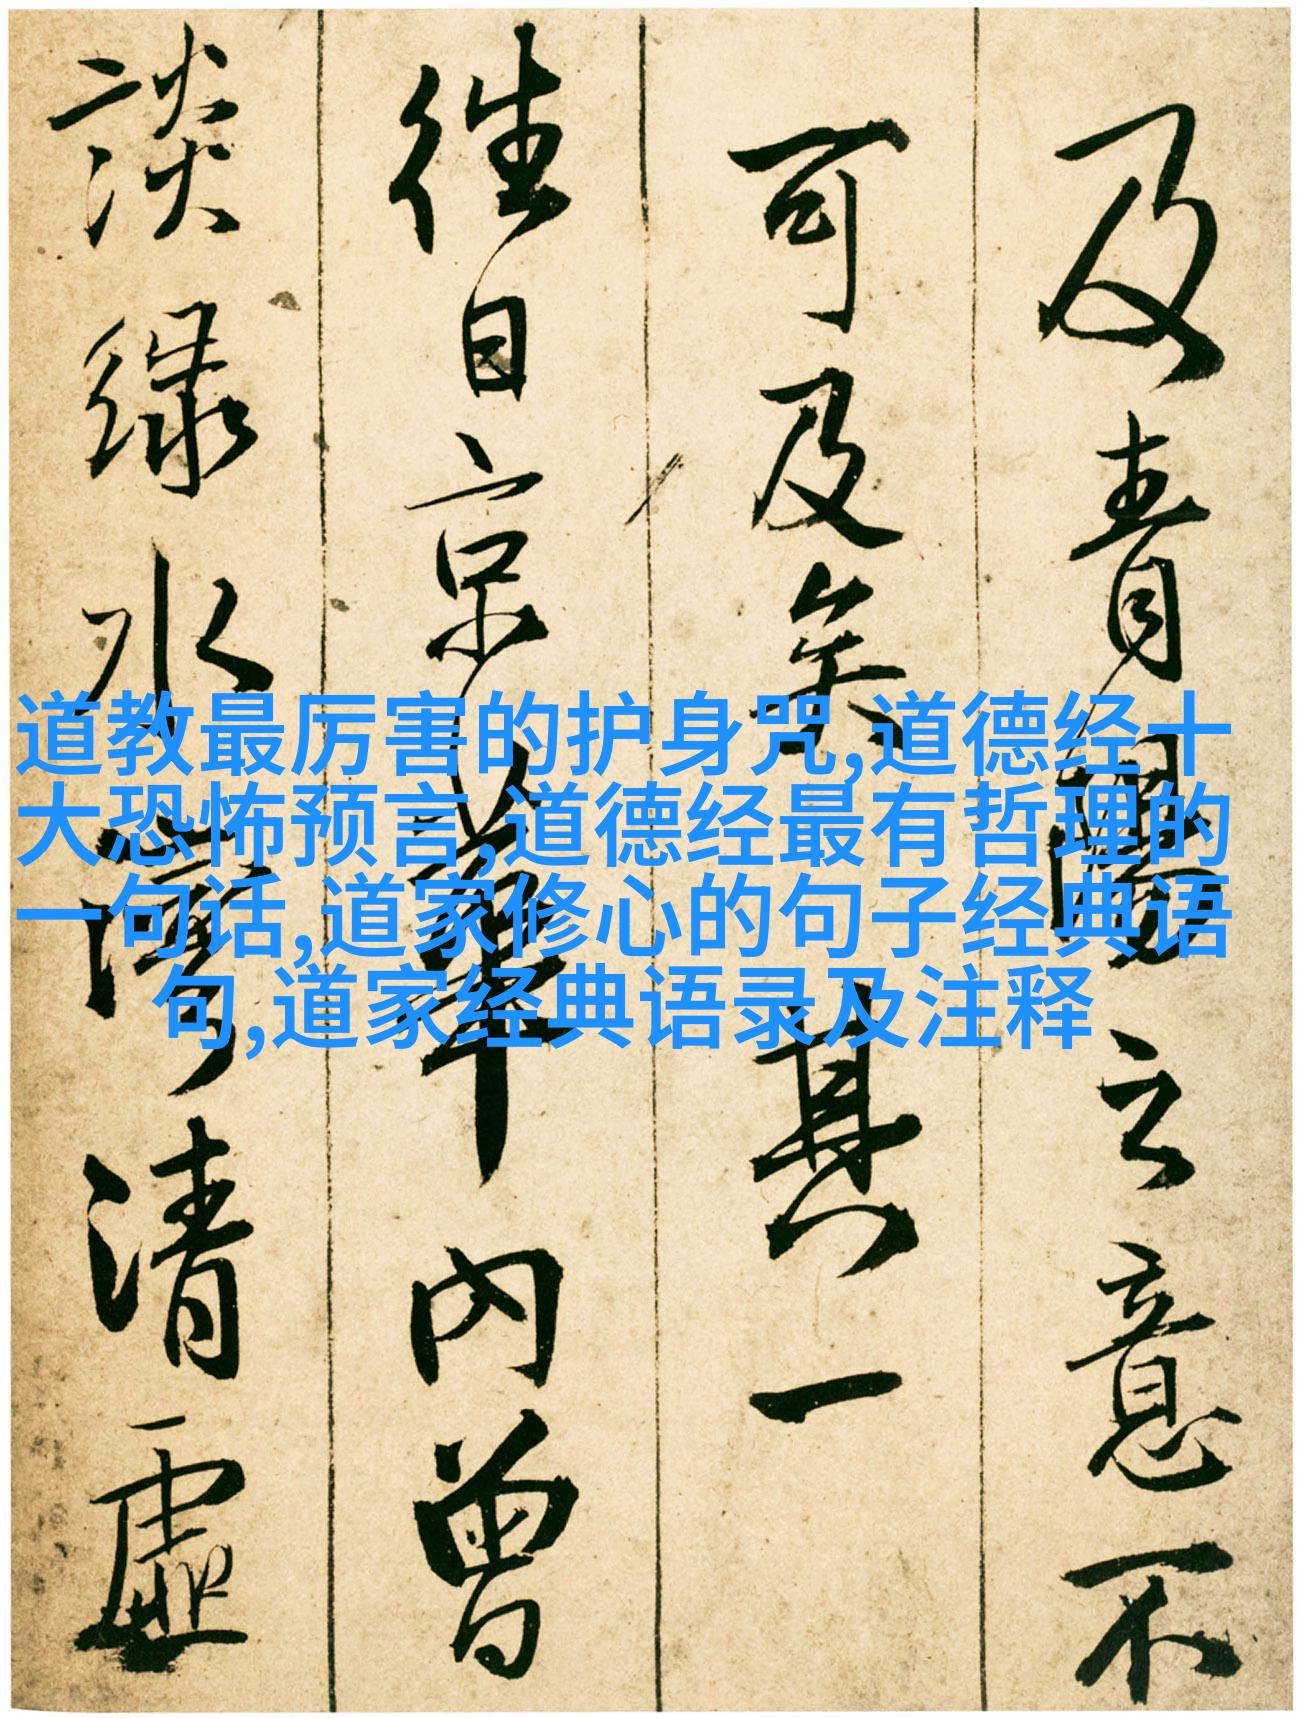 及青云意不
可及矣其一
往日京華內曾
談綠水灣清虛
道教最厉害的护身咒,道德经十
大恐怖预言,道德经最有哲理的
一句话,道家修心的句子经典语
句,道家经典语录及注释